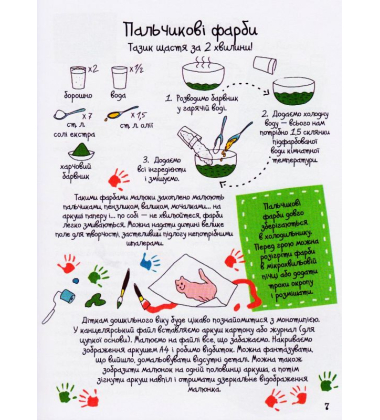 Пальчикові фарби
Тазик щастя за 2 хвилини!
x2
x1/2
борошно
вода
x7
ст. л.
солі екстра
x1,5
ст. л. олії
харчовий
барвник
1. Розводимо барвник
у гарячій воді.
2. Додаємо холодну
воду — всього нам
потрібно 1,5 склянки
підфарбованої
води кімнатної
температури.
3. Додаємо
всі інгредієнти
і змішуємо.
Такими фарбами малюки захоплено малюють
пальчиками, пензликом, валиком, мочалками... на
аркуші паперу і... по собі — не хвилюйтеся, фарби
легко змиваються. Можна надати дитині велике
поле для творчості, застеливши підлогу непотрібними
шпалерами.
Пальчикові
фарби довго
зберігаються
в холодильнику.
Перед грою можна
розігріти фарби
в мікрохвильовій
печі або додати
трохи окропу
і розмішати.
Діткам дошкільного віку буде цікаво познайомитися з монотипією.
У канцелярський файл вставляємо аркуш картону або журнал (для
цупкої основи). Малюємо на файлі все, що забажаємо. Накриваємо
зображення аркушем А4 і робимо відбиток. Можна фантазувати,
що вийшло, домальовувати відсутні деталі. Можна також
зобразити малюнок на одній половинці аркуша, а потім
зігнути аркуш навпіл і отримати дзеркальне відображення
малюнка.
7